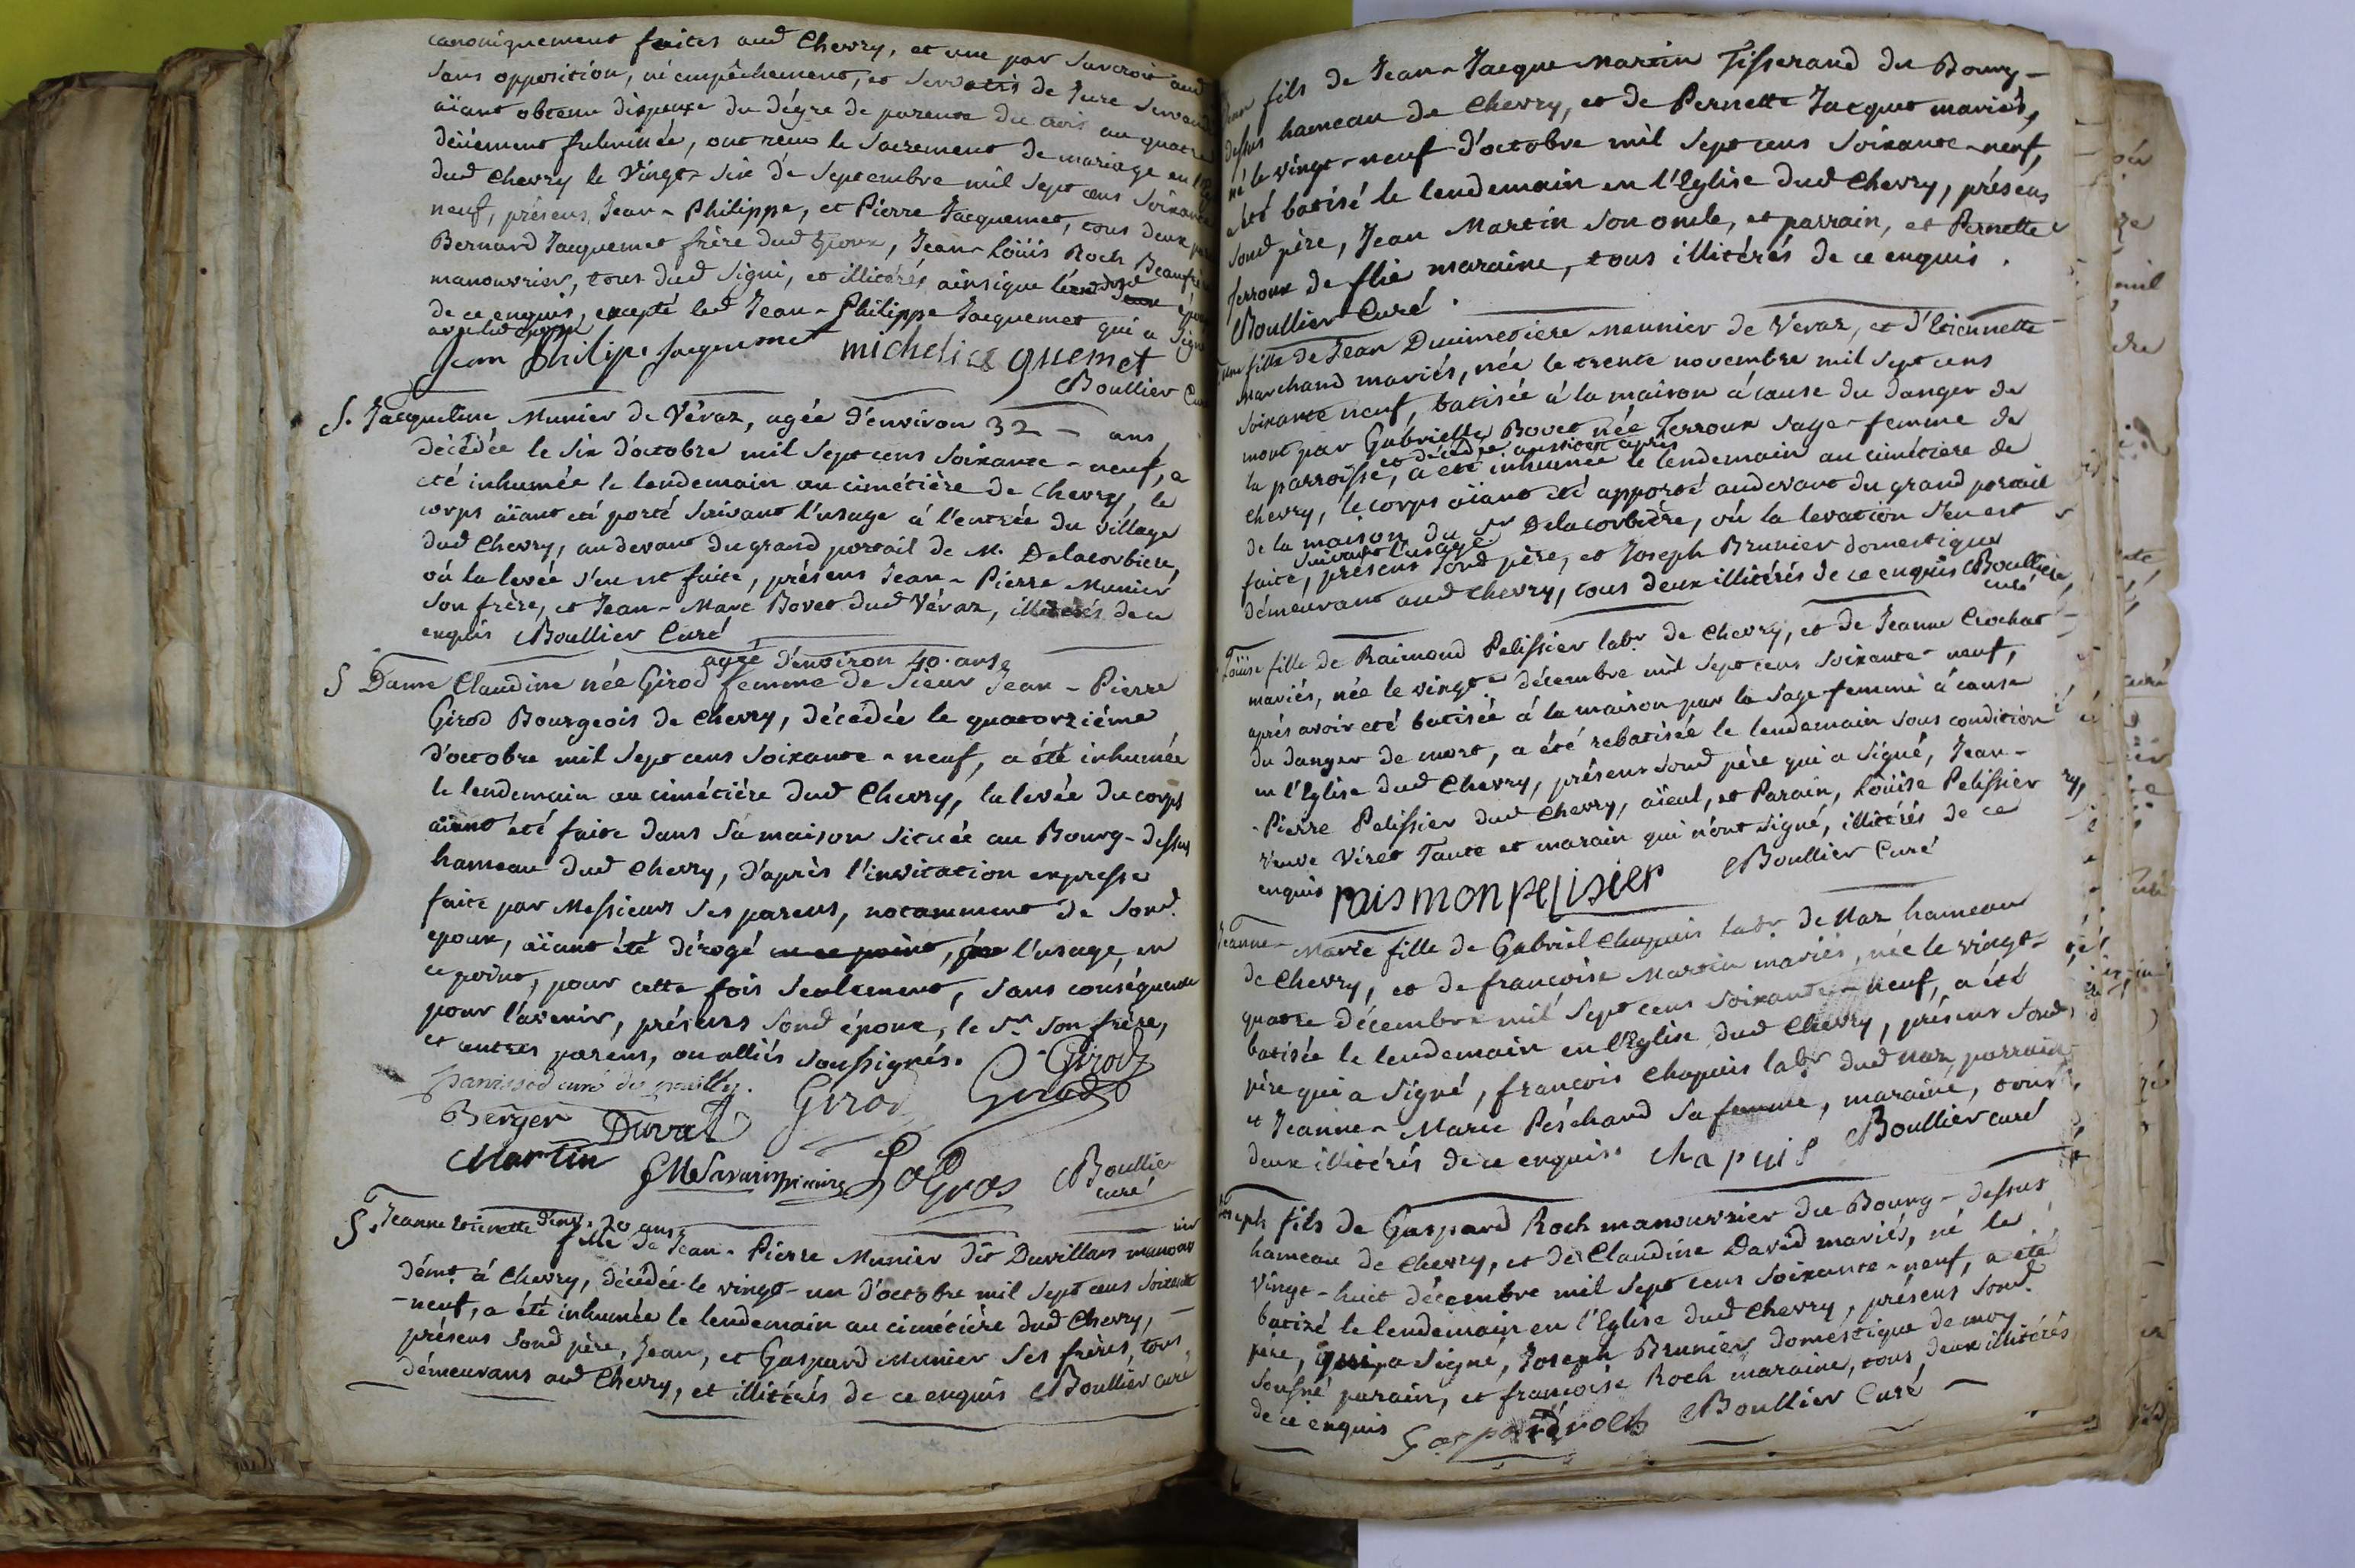 canoniquement faites aud Chevry, et une par surcroit aud
sans opposition, ni empêchement, et
aïant obtenu dispense du dégre de parenté du trois au quatre
dëüement fulminée, ont reçu le Sacrement de mariage en
dud Chevry le Vingt-six de Septembre mil sept cens soixante
neuf, présens Jean-Philippe, et Pierre Jacquemet, tous deux
Bernard Jacquemet frère dud Epoux, Jean-Loüis Roch Beaufrère
manouvrier, tous dud Signi, et illitérés ainsi que
de ce enquis, excepté led Jean-Philippe Jacquemet qui a signé
avec led époux
Jean philipe Jacquemet michel ia quemet
Boullier Curé
S. Jacqueline Munier de Véraz, agée d'environ 32 - ans,
décédée le six d'octobre mil sept cens soixante-neuf, a
eté inhumée le lendemain au cimétière de Chevry, le
corps aïant eté porté suivant l'usage à l'entrée du village
dud Chevry, au devant du grand portail de M. Delacorbiere,
où la levée s'en est faite, présens Jean-Pierre Munier
son frère, et Jean-Marc Bovet dud Véraz, illitérés de ce
enquis Boullier Curé
agée d'environ 40. ans
S Dame Claudine née Girod femme de Sieur Jean-Pierre
Girod Bourgeois de Chevry, décédée le quatorziéme
d'octobre mil sept cens soixante-neuf, a été inhumée
le lendemain au cimétiére dud Chevry, la levée du corps
aïant été faite dans sa maison située au Bourg-dessus
hameau dud Chevry, d'après l'invitation expresse
faite par Messieurs ses parens, notamment de sond.
epoux, aïant été dérogé en ce point, l'usage, en
ce point, pour cette fois seulement, sans conséquence
pour l'avenir, présens sond époux, le Sr. son frère,
et autres parens, ou alliés soussignés.
Girod
panissod curé de pouilly. Girod Girod
Berger Duval
Martin GM Savarin vicaire LaGros Boullier
curé
S. Jeanne Etienette d'env. 20 ans
fille de Jean-Pierre Munier dit Duvillars manouvrier
démt. à Chevry, décédée le vingt-un d'octobre mil sept cens soixante
-neuf, a été inhumée le lendemain au cimétiére dud Chevry,
présens sond père, Jean, et Gaspard Munier ses frères, tous
démeurans aud Chevry, et illitérés de ce enquis Boullier curé
fils de Jean-Jacque Martin Tisserand du Bourg-
dessus hameau de Chevry, et de Pernette Jacquet mariés,
né le vingt-neuf d'octobre mil sept cens soixante-neuf,
a été batisé le lendemain en l'Eglise dud Chevry, présens
sond père, Jean Martin son oncle, et parrain, et Pernette
Terroux de flié maraine, tous illitérés de ce enquis.
Boullier Curé
Une fille de Jean Ducimetiere Meunier de Veraz, et d'Etiennette
Marchand mariés, née le trente novembre mil sept cens
soixante neuf, batisée à la maison à cause du danger de
mort par Gabrielle Bovet née Terroux sage-femme de
et décédée aussitôt après
la parroisse, a été inhumée le lendemain au cimétiere de
Chevry, le corps aïant été apporté audevant du grand portail
de la maison du Sr Delacorbière, où la levation s'en est
suivant l'usage
faite, présens sond père, et Joseph Brunier domestique
démeurant aud Chevry, tous deux illitérés de ce enquis Boullier
curé
Loüise fille de Raimond Pelissier labr. de Chevry, et de Jeanne Crochat
mariés, née le vingt décembre mil sept cens soixante-neuf,
aprés avoir eté batisée à la maison par la sage-femme à cause
du danger de mort, a été rebatisée le lendemain sous condition
en l'Eglise dud Chevry, présens sond père qui a signé, Jean-
-Pierre Pelissier dud Chevry, aïeul, et Parain, Loüise Pelissier
veuve Viret Tante et marain qui n'ont signé, illitérés de ce
enquis raismon pelisier Boullier Curé
Jeanne-Marie fille de Gabriel Chapuis labr de Naz hameau
de Chevry, et de françoise Martin mariés, née le vingt-
quatre décembre mil sept cens soixante-neuf, a été
batisée le lendemain en l'Eglise dud Chevry, présens sond
père qui a signé, françois Chapuis labr dud Naz parrain
et Jeanne-Marie Peschard sa femme, maraine, tous
deux illitérés de ce enquis. chapuis Boullier curé
Joseph fils de Gaspard Roch manouvrier du Bourg-dessus
hameau de Chevry, et de Claudine David mariés, né le
vingt-huit décembre mil sept cens soixante-neuf, a été
batizé le lendemain en l'Eglise dud Chevry, présens sond.
père, qui a signé, Joseph Brunier domestique de moy
sousné parain, et françoise Roch maraine, tous deux illitérés
de ce enquis Gaspard roch Boullier Curé